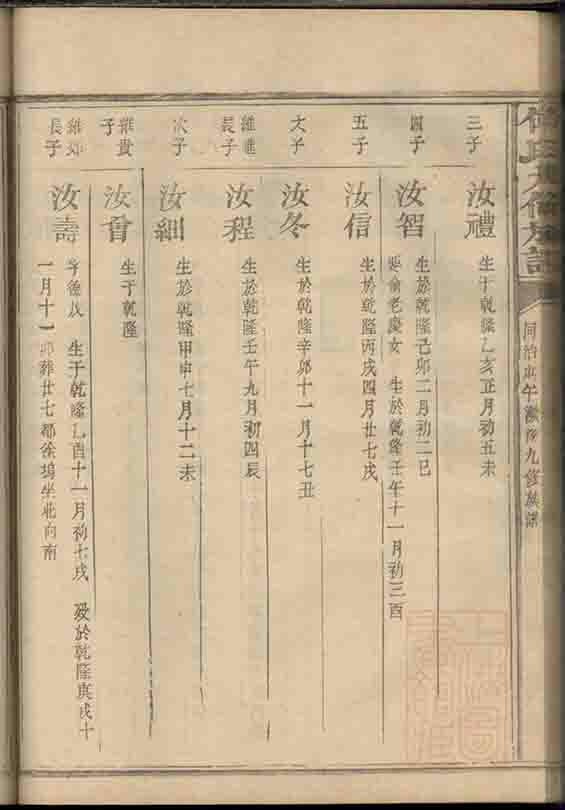 氏九修族譜
同治庚午 九修族譜
三子
汝禮
生于乾隆乙亥正月初五未
四子
汝智
生於乾隆己卯二月初二巳
娶俞老慶女 生於乾隆壬午十一月初三酉
五子
汝信
生於乾隆丙戌四月廿七戌
六子
汝冬
生於乾隆辛卯十一月十七丑
維進
長子
汝程
生於乾隆壬午九月初四辰
次子
汝細
生於乾隆甲申七月十二未
維貴
子
汝會
生于乾隆
維郊
長子
汝壽
字德成 生于乾隆乙酉十一月初七戌 歿於乾隆庚戌十
一月十一卯葬廿七都徐塢坐北向南
上海圖
書館